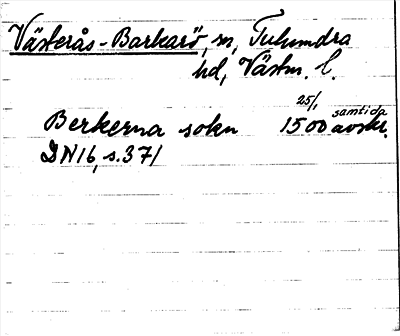 Västerås-Barkarö, sn, Tuhundra
hd, Västm. l.
Berkerna sokn 25/1 1500 samtida avskr.
DN16, s. 371